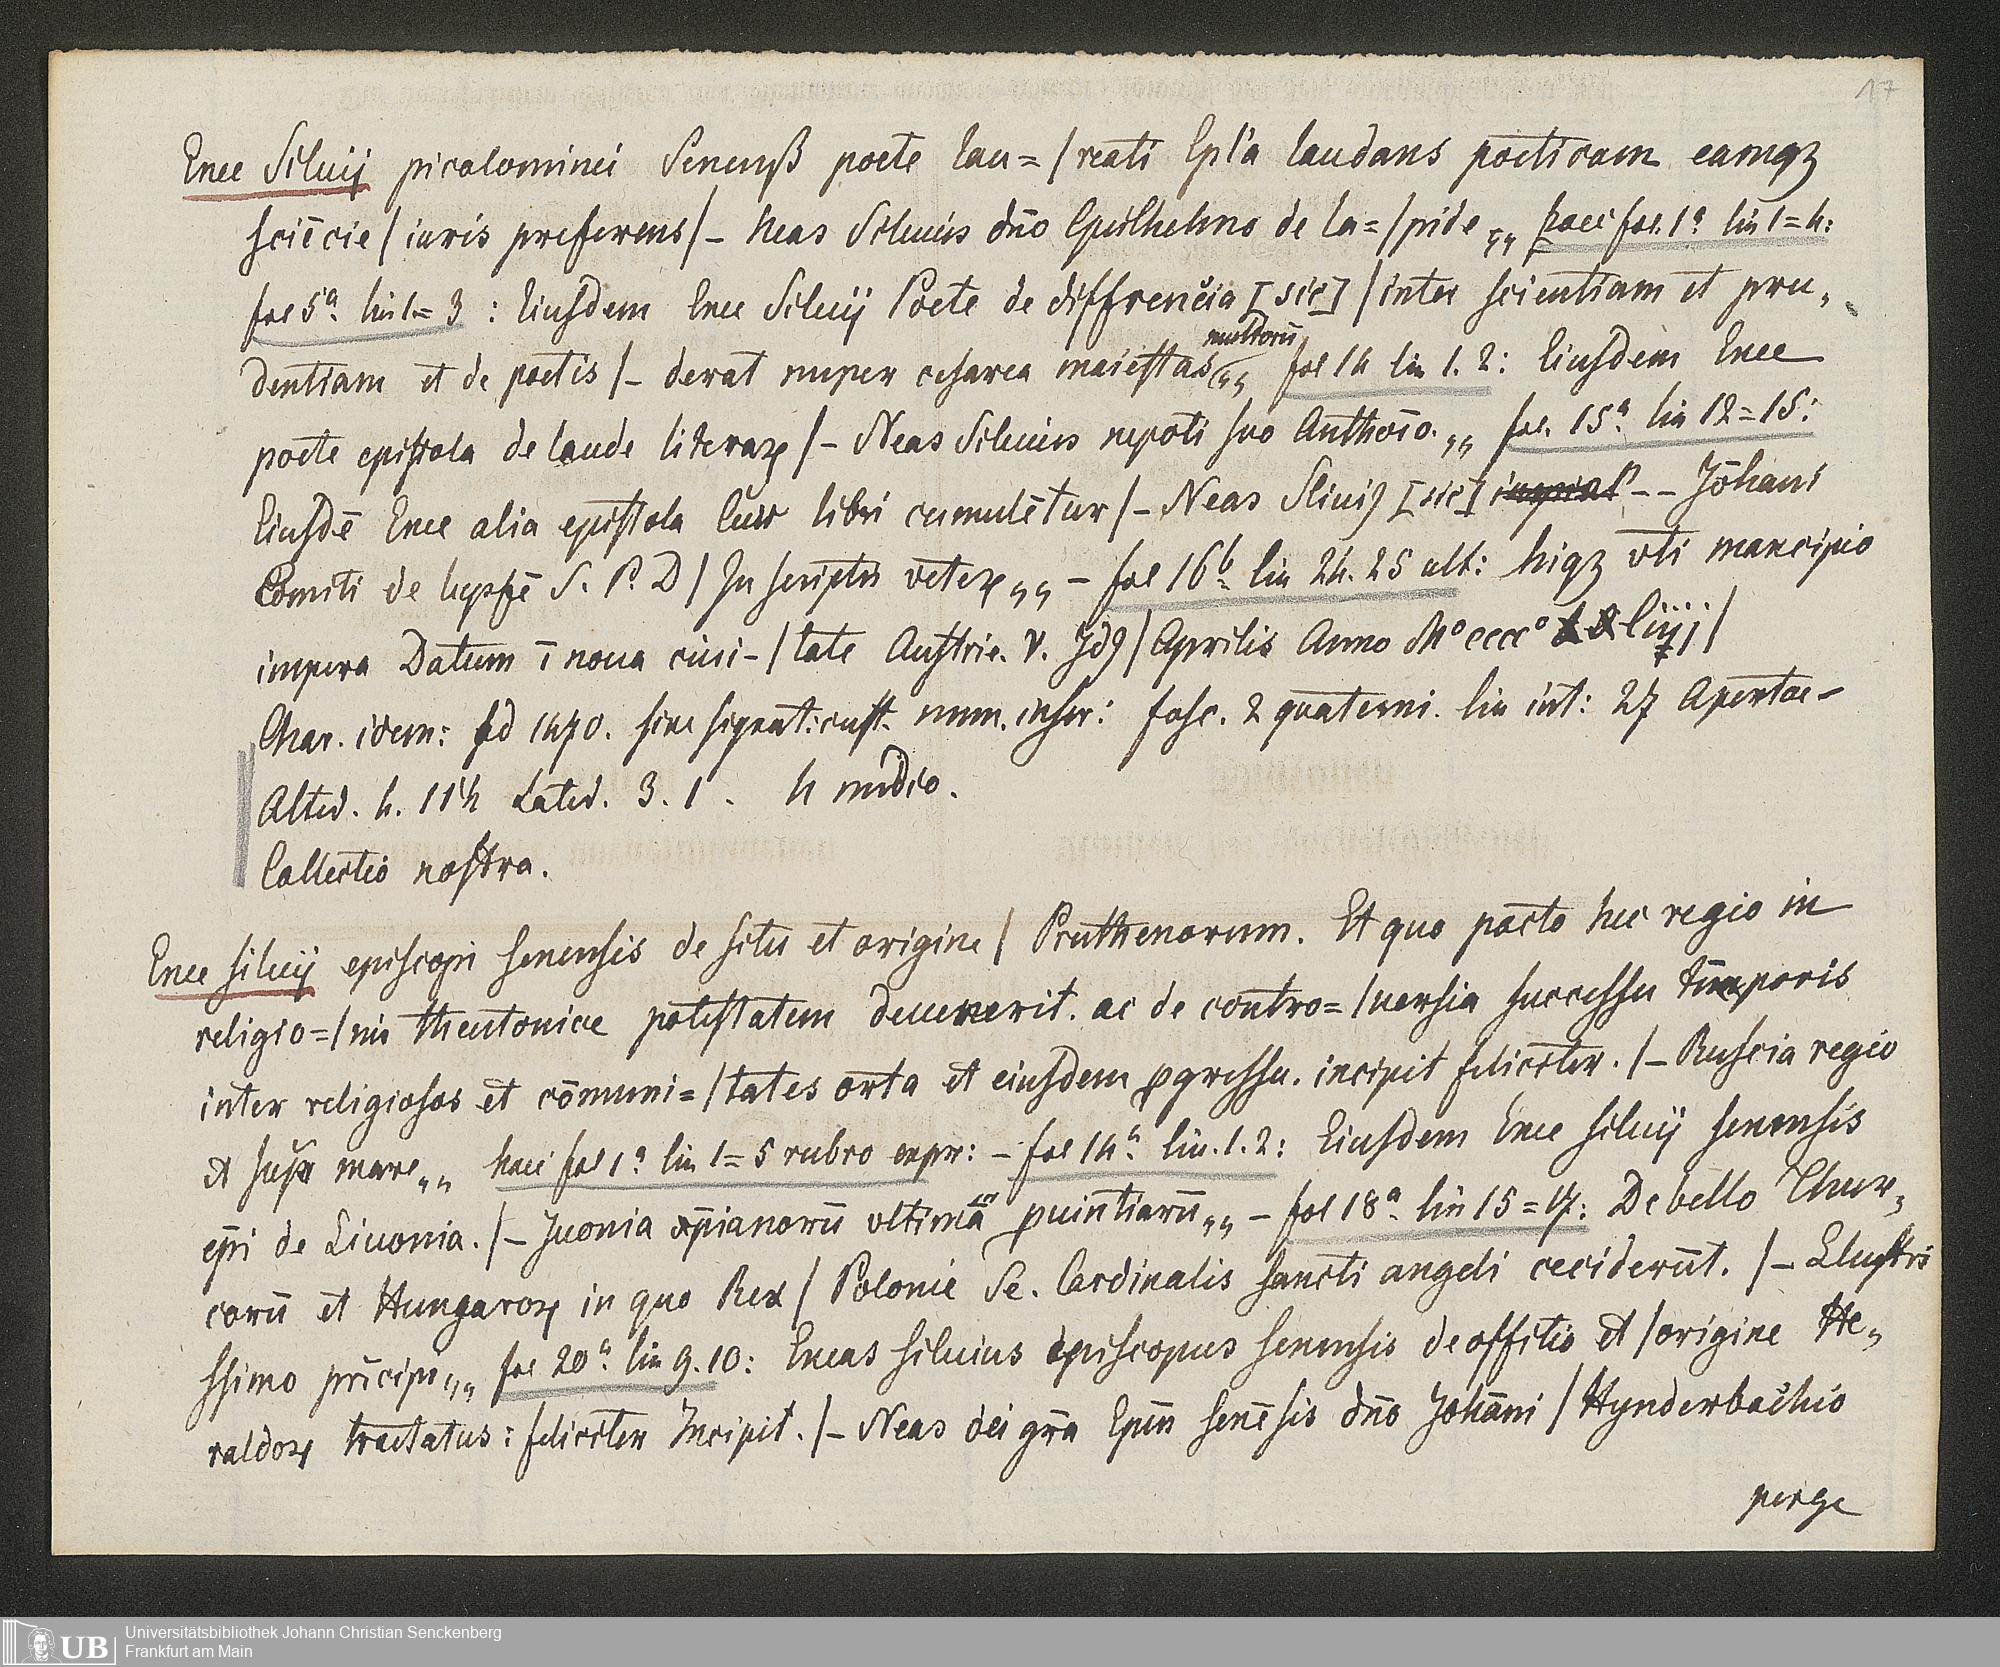 17
Enee Siluij picolominei Senensß poete lau=/reati Epl'a laudans poeticam eamqz
sciēcie/iuris preferens/– Neas Siluius dño Guilhelmo de la=/pide „„ haec fol. 1ª lin 1=4:
fol 5ª lin 1=3 : Eiusdem Enee Siluij Poete de diffrencia [sic] /inter scientiam et pru„
dentiam et de poetis/– derat nuper cesarea maiestas „„ multorū fol 14 lin 1. 2: Eiusdem Enee
poete epistola de laude literaꝝ/– Neas Siluius nepoti suo Anthoīo. „„ fol. 15ª lin 12=15:
Eiusdē Enee alia epistola Cuiꝰ libri cumulētur/– Neas Sliuiꝰ [sic] – – Johani
Comiti de lupfē S. P. D/ In scriptis veteꝝ „„ – fol 16ᵇ lin 24. 25 ult: hiqz vti mancipio
impera Datum ī noua ciui–/tate Austrie. V. Idꝰ/ Aprilis Anno M° cccc° liiij/
Char. idem: fd 1470. sine signat: cust. num. inser: fasc. 2 quaterni. lin int: 27 Apertae–
Altid. 4. 11'4 Latid. 3. 1 . 4 medio.
Collectio nostra.
Enee siluij episcopi senensis de situ et origine / Pruthenorum. Et quo pacto hec regio in
religio=/nis theutonice potestatem deuenerit. ac de contro=/uersia successu temporis
inter religiosos et cōmuni=/tates orta et eiusdem ꝓgressu. incipit feliciter./– Ruscia regio
et suꝑ mare „„ haec fol 1ª lin 1=5 rubro expr: – fol 14ª lin. 1. 2: Eiusdem Enee siluij senensis
ep̄i de Liuonia./– Iuonia xp̄ianorū vltima ꝓuintiarū „„ – fol 18ª lin 15=17: De bello Thur„
corū et Hungaroꝝ in quo Rex / Polonie Se. Cardinalis sancti angeli ceciderūt. /– Llustri
ssimo prīcipe „„ fol 20ª lin 9. 10: Eneas siluius episcopus senensis de offitio et /origine He„
raldoꝝ tractatus: feliciter Incipit./– Neas dei gr̄a Ep̄us senēsis dño Johāni / Hynderbachio
perge
UB
Universitätsbibliothek Johann Christian Senckenberg
Frankfurt am Main